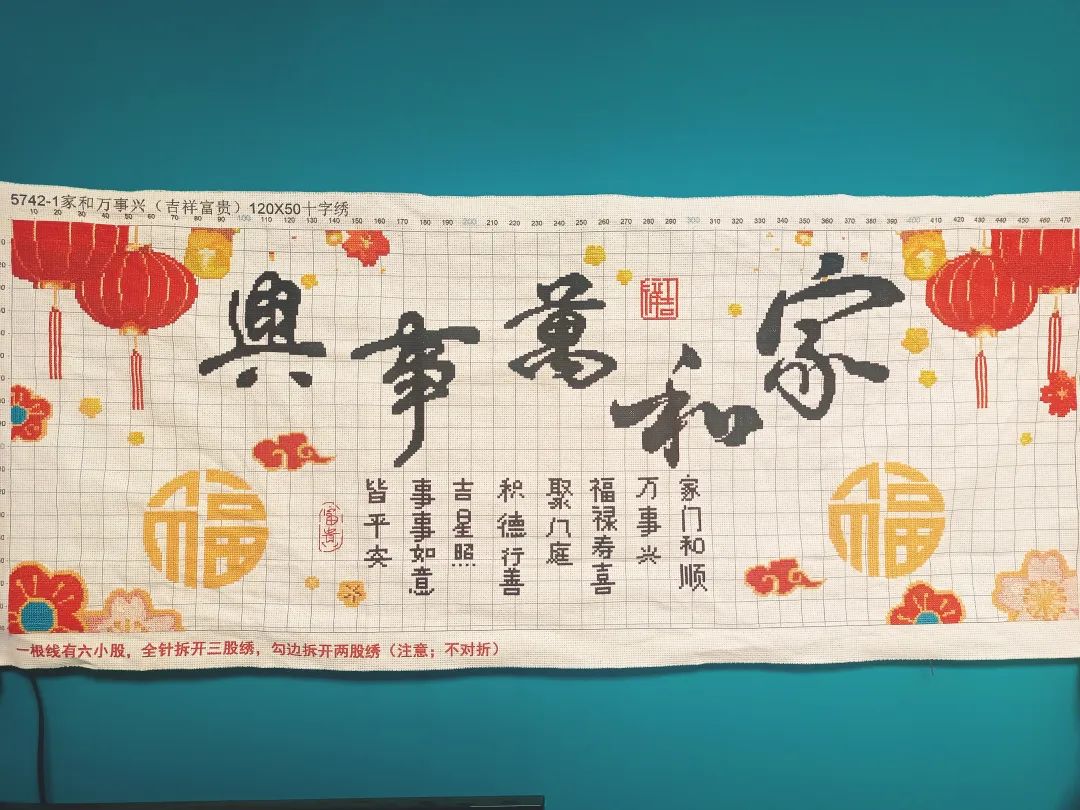 5742-1家和万事兴（吉祥富贵）120X50十字绣
10 20 30 40 50 60 70 80 90 100 110 120 130 140 150 160 170 180 190 200 210 220 230 240 250 260 270 280 290 300 310 320 330 340 350 360 370 380 390 400 410 420 430 440 450 460 470
家和萬事興
吉祥
家门和顺
万事兴
福禄寿喜
聚门庭
积德行善
吉星照
事事如意
皆平安
富贵
福
福
一根线有六小股，全针拆开三股绣，勾边拆开两股绣（注意；不对折）